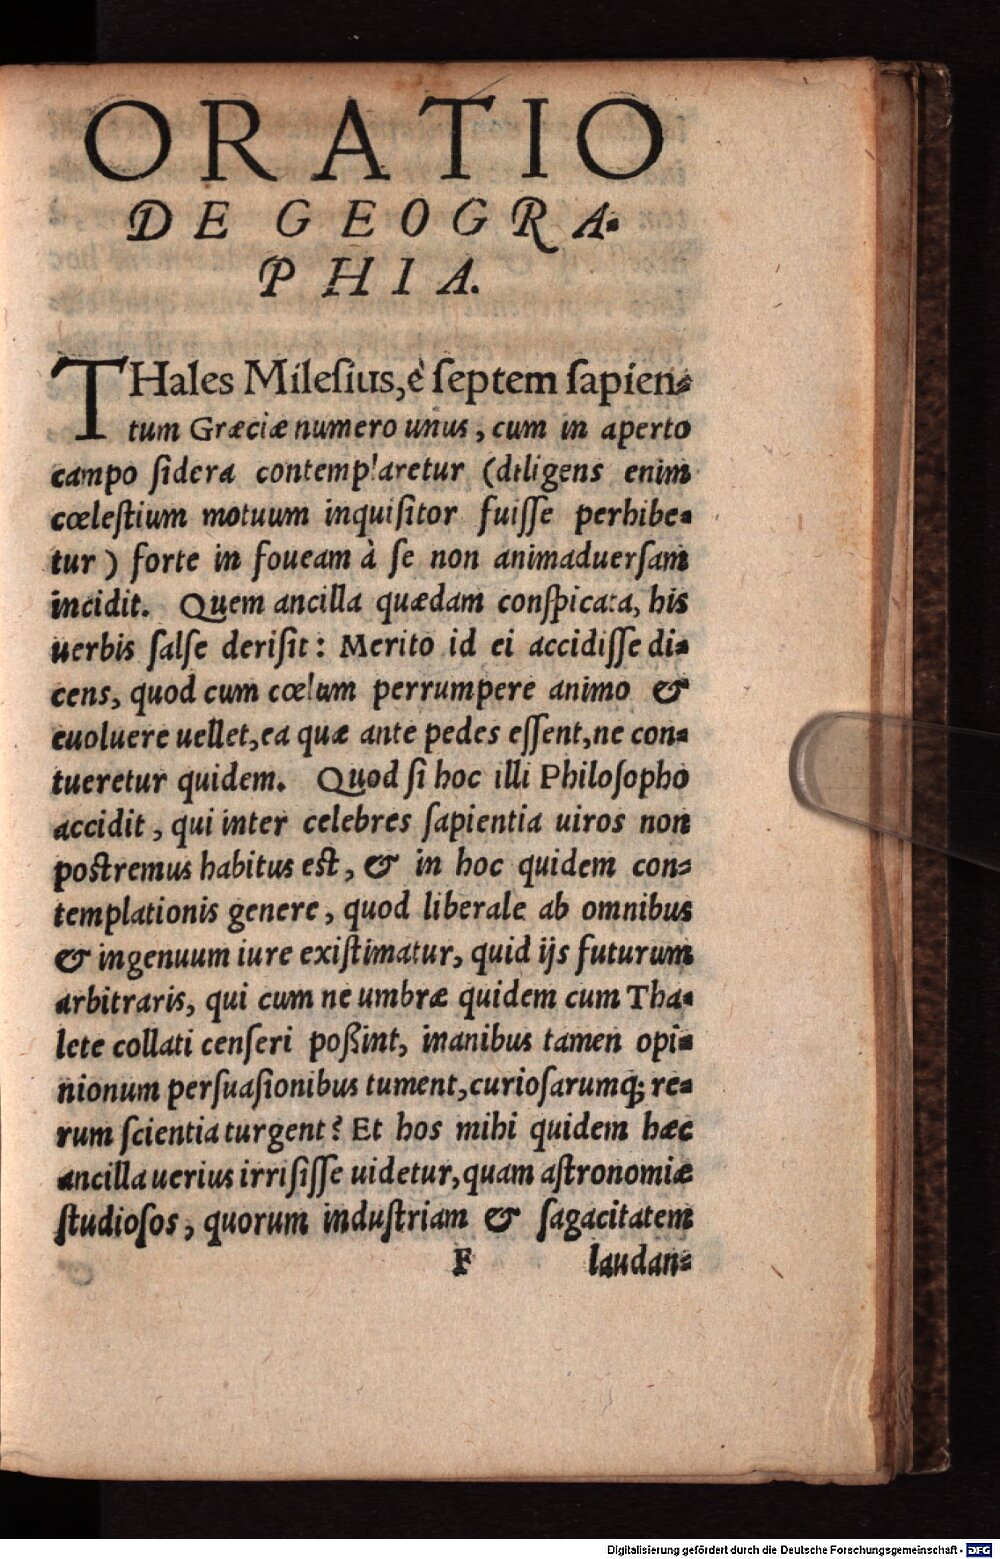 ORATIO
DE GEOGRA-
PHIA.
THales Milesius, è septem sapien-
tum Græciæ numero unus, cum in aperto
campo sidera contemplaretur (diligens enim
cœlestium motuum inquisitor fuisse perhibe-
tur) forte in foueam à se non animaduersam
incidit. Quem ancilla quædam conspicata, his
uerbis salse derisit: Merito id ei accidisse di-
cens, quod cum cœlum perrumpere animo &
euoluere uellet, ea quæ ante pedes essent, ne con-
tueretur quidem. Quod si hoc illi Philosopho
accidit, qui inter celebres sapientia uiros non
postremus habitus est, & in hoc quidem con-
templationis genere, quod liberale ab omnibus
& ingenuum iure existimatur, quid ijs futurum
arbitraris, qui cum ne umbræ quidem cum Tha-
lete collati censeri poßint, inanibus tamen opi-
nionum persuasionibus tument, curiosarumq; re-
rum scientia turgent? Et hos mihi quidem hæc
ancilla uerius irrisisse uidetur, quam astronomiæ
studiosos, quorum industriam & sagacitatem
F laudan-
Digitalisierung gefördert durch die Deutsche Forschungsgemeinschaft - DFG